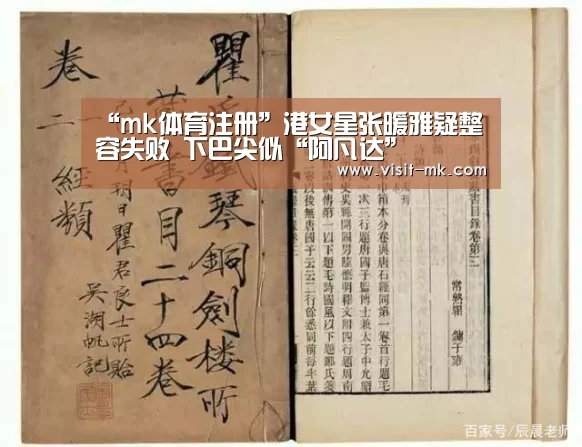 “mk体育注册”港女星张暖雅疑整
容失败 下巴尖似“阿凡达”
www.visit-mk.com
瞿氏鐵琴銅劍楼所
書目二十四卷
月朔日瞿君良士所貽
吴湖帆記
卷二 經類
書目錄卷第二
常熟瞿 鏞子雍
巾箱本分卷與唐石經同第一卷首行題周
次三行題唐國子監博士兼太子中允贈
吴縣開國男陸德明釋文附四行題周南
詁訓傳第一以下題毛詩國風以下題鄭氏箋
卷以後無唐國子云云二行餘悉同前每半葉
百家号/辰晨老师